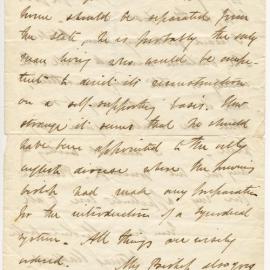 home should be separated from
the state, he is probably the only
man living who would be compe-
tent to direct its reconstruction
on a self-supporting basis. How
strange it seems that he should
have been appointed to the only
english diocese where the previous
bishop had made any preparation
for the introduction of a synodical
system. All things are wisely
ordered.
My Bishop